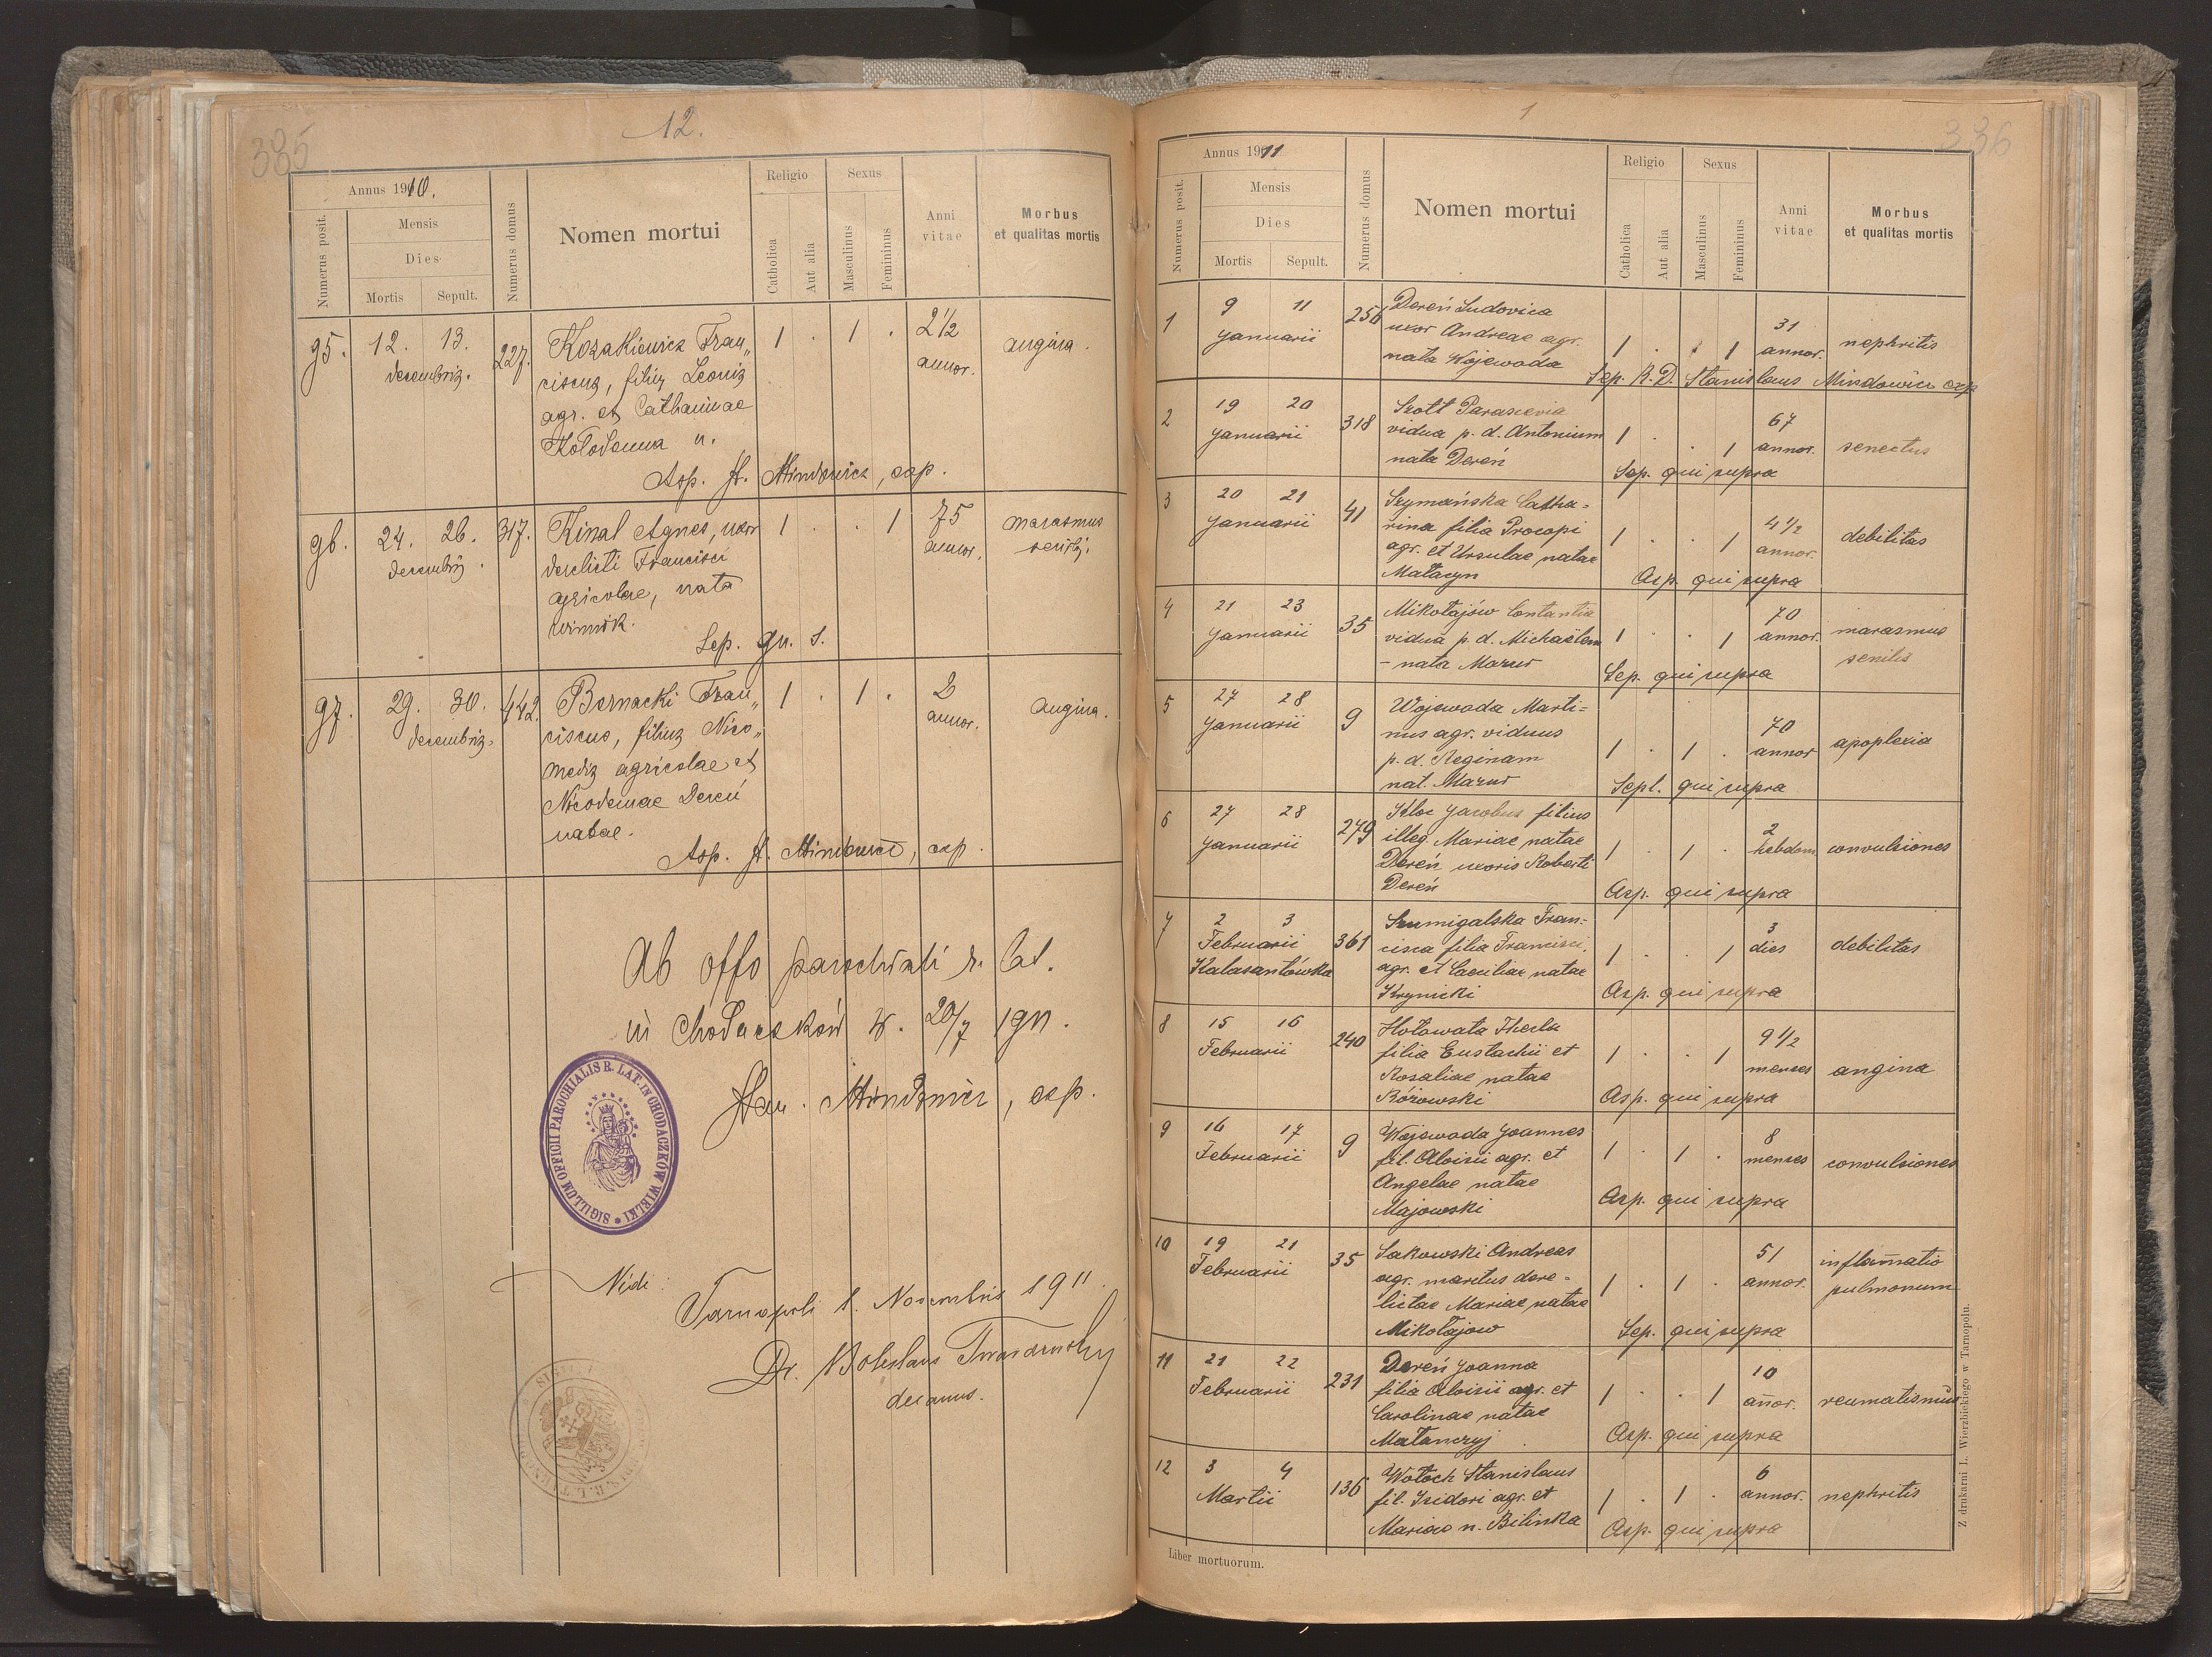 385
12.
Annus 1910.
Numerus posit.
Mensis
Dies
Mortis
Sepult.
Numerus domus
Nomen mortui
Religio
Catholica
Aut alia
Sexus
Masculinus
Femininus
Anni
vitae
Morbus
et qualitas mortis
95. 12. 13. 227. Kozakiewicz Fran„ 1 . 1 . 2 1/2 angina.
decembris. ciscus, filius Leonis annor.
agr. et Catharinae
Kołodenna n.
Asp. St. Mindowicz, exp.
96. 24. 26. 317. Kinal Agnes, uxor 1 . . 1 75 marasmus
decembris. derelicti Francisci annor. senilis.
agricolae, nata
Winnik.
Sep. qu. s.
97. 29. 30. 442. Bernacki Fran„ 1 . 1 . 2 angina.
decembris. ciscus, filius Nico„ annor.
medis agricolae et
Nicodemae Dereń
natae.
Asp. St. Mindowicz, exp.
Ab offo parochiali r. lat.
in Chodaczków W. 20/7 1911.
Stan. Mindowicz, exp.
SIGILLUM OFFICII PAROCHIALIS R. LAT. IN CHODACZKÓW WIELKI
Vidi:
Tarnopoli 1. Novembris 1911.
Dr. Boleslaus Twardowski
decanus.
1
336
Annus 1911
Numerus posit.
Mensis
Dies
Mortis
Sepult.
Numerus domus
Nomen mortui
Religio
Catholica
Aut alia
Sexus
Masculinus
Femininus
Anni
vitae
Morbus
et qualitas mortis
1 9 11 256 Dereń Ludovica 31
Januarii uxor Andreae agr. 1 . . 1 annor. nephritis
nata Wojewoda
Sep. R. D. Stanislaus Mindowicz exp
2 19 20 318 Szott Parascevia 67
Januarii vidua p. d. Antonium 1 . . 1 annor. senectus
nata Dereń
Sep. qui supra
3 20 21 41 Szymańska Catha=
Januarii rina filia Procopi 1 . . 1 4 1/2 debilitas
agr. et Ursulae natae annor.
Matacyn
Asp. qui supra
4 21 23 35 Mikołajów Contantia 70
Januarii vidua p. d. Michaëlem 1 . . 1 annor. marasmus
- nata Mazur senilis
Sep. qui supra
5 27 28 9 Wojewoda Marti=
Januarii nus agr. viduus 70
p. d. Reginam 1 . 1 . annor apoplexia
nat. Mazur
Sepl. qui supra
6 27 28 279 Kloc Jacobus filius
Januarii illeg. Mariae natae 2
Dereń uxoris Roberti 1 . 1 . hebdom. convulsiones
Dereń
Asp. qui supra
7 2 3 361 Szumigalska Fran=
Februarii cisca filia Francisci, 3
Kalasantówka agr. et Caeciliae natae 1 . . 1 dies debilitas
Krynicki
Asp. qui supra
8 15 16 240 Hołowata Thecla
Februarii filia Eustachii et 9 1/2
Rosaliae natae 1 . . 1 menses angina
Różowski
Asp. qui supra
9 16 17 9 Wojewoda Joannes 8
Februarii fil. Aloisii agr. et 1 . 1 . menses convulsiones
Angelae natae
Majowski
Asp. qui supra
10 19 21 35 Sakowski Andreas 51 inflam̄atio
Februarii agr. maritus dere= 1 . 1 . annor. pulmonum
lictae Mariae natae
Mikołajow
Sep. qui supra
11 21 22 231 Dereń Joanna 10
Februarii filia Aloisii agr. et 1 . . 1 an̄or. reumatismus
Carolinae natae
Matanczyj
Asp. qui supra
12 3 4 136 Wołoch Stanislaus 6
Martii fil. Isidori agr. et 1 . 1 . annor. nephritis
Mariae n. Bilinka
Asp. qui supra
Liber mortuorum.
Z drukarni L. Wierzbickiego w Tarnopolu.